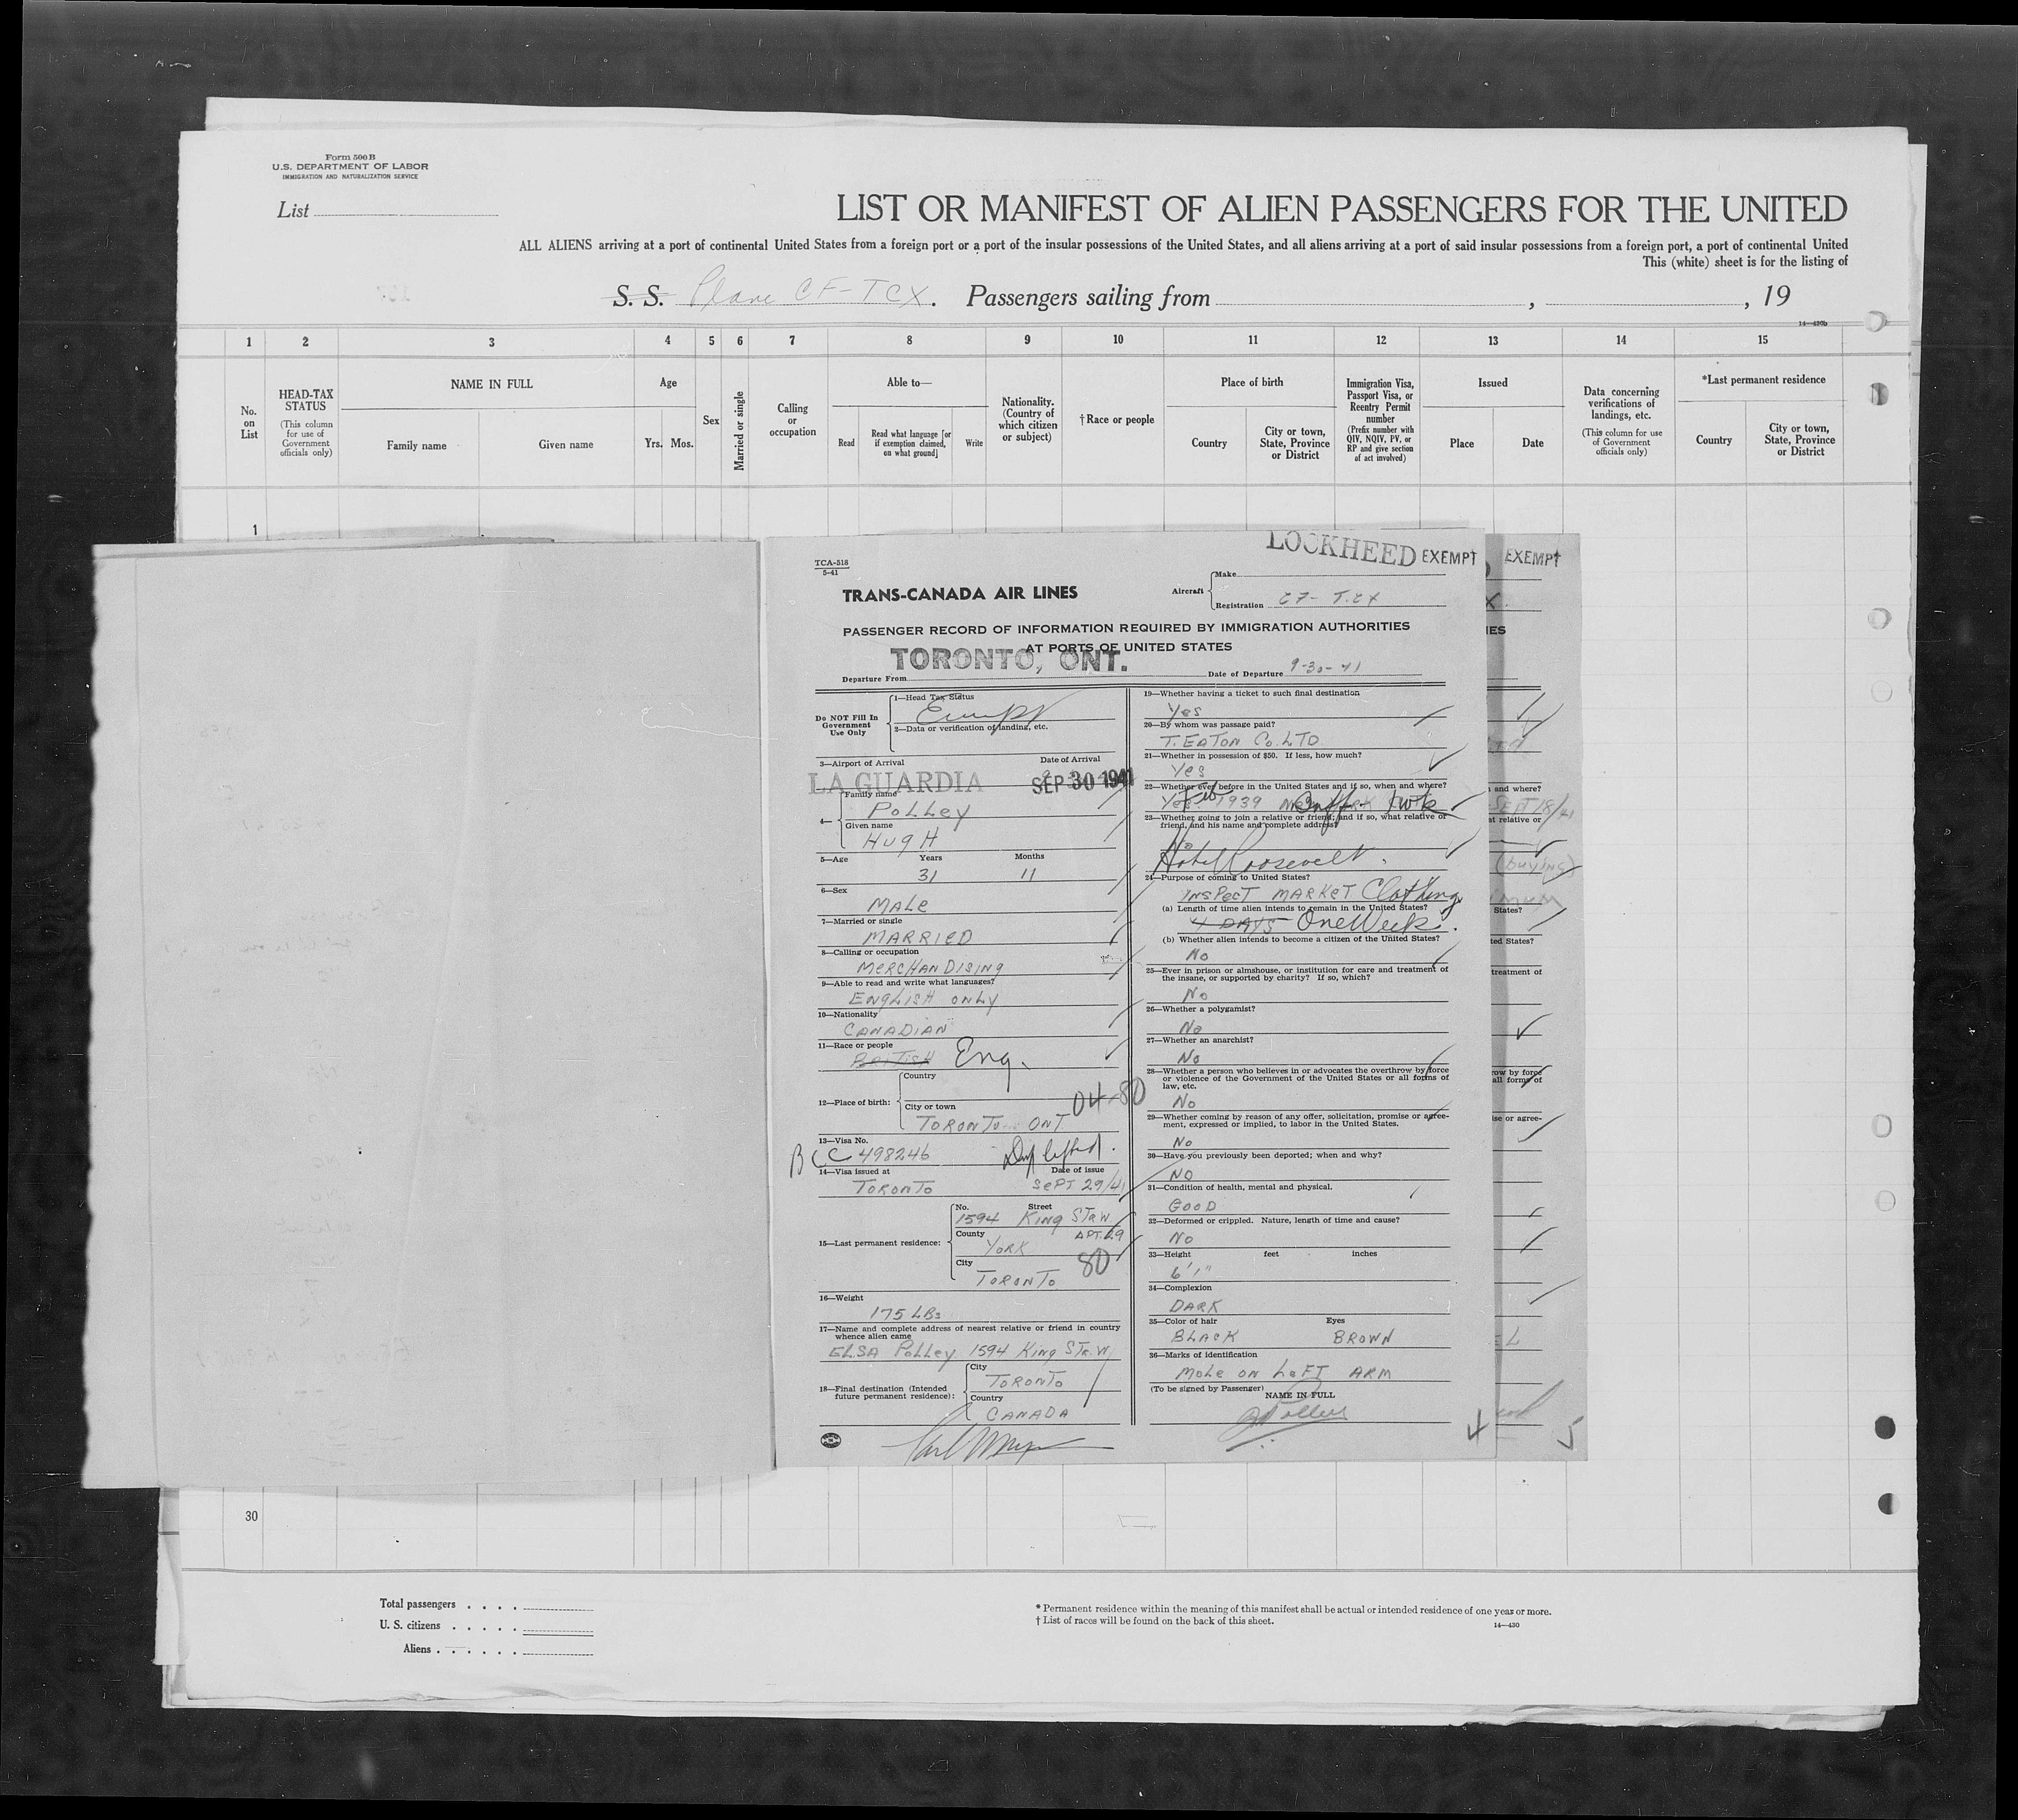 Form 500 B
U.S. DEPARTMENT OF LABOR
IMMIGRATION AND NATURALIZATION SERVICE
List
LIST OR MANIFEST OF ALIEN PASSENGERS FOR THE UNITED
ALL ALIENS arriving at a port of continental United States from a foreign port or a port of the insular possessions of the United States, and all aliens arriving at a port of said insular possessions from a foreign port, a port of continental United
This (white) sheet is for the listing of
S. S. Plane CF-TCX. Passengers sailing from , , 19
14—430b
1 2 3 4 5 6 7 8 9 10 11 12 13 14 15
No. on List
HEAD-TAX STATUS
(This column for use of Government officials only)
NAME IN FULL
Family name Given name
Age
Yrs. Mos.
Sex
Married or single
Calling or occupation
Able to—
Read
Read what language [or if exemption claimed, on what ground]
Write
Nationality. (Country of which citizen or subject)
† Race or people
Place of birth
Country
City or town, State, Province or District
Immigration Visa, Passport Visa, or Reentry Permit number
(Prefix number with QIV, NQIV, PV, or RP and give section of act involved)
Issued
Place Date
Data concerning verifications of landings, etc.
(This column for use of Government officials only)
*Last permanent residence
Country
City or town, State, Province or District
1
TCA-518
5-41
LOCKHEED EXEMPT
EXEMPT
TRANS-CANADA AIR LINES
Aircraft
Make
Registration CF-T.CX
PASSENGER RECORD OF INFORMATION REQUIRED BY IMMIGRATION AUTHORITIES
AT PORTS OF UNITED STATES
TORONTO, ONT.
Departure From Date of Departure 9-30-41
Do NOT Fill In Government Use Only
1—Head Tax Status
Exempt
2—Data or verification of landing, etc.
3—Airport of Arrival Date of Arrival
LA GUARDIA SEP 30 1941
4—
Family name
POLLEY
Given name
HUGH
5—Age Years Months
31 11
6—Sex
MALE
7—Married or single
MARRIED
8—Calling or occupation
MERCHANDISING
9—Able to read and write what languages?
ENGLISH ONLY
10—Nationality
CANADIAN
11—Race or people
BRITISH Eng.
12—Place of birth:
Country
04-80
City or town
TORONTO ONT
13—Visa No.
BCC 498246 Dup lifted.
14—Visa issued at Date of issue
TORONTO SEPT 29/41
15—Last permanent residence:
No. Street
1594 KING ST.W
County APT.69
YORK
City 80
TORONTO
16—Weight
175 LBS
17—Name and complete address of nearest relative or friend in country whence alien came
ELSA POLLEY 1594 KING ST.W.
18—Final destination (Intended future permanent residence):
City
TORONTO
Country
CANADA
19—Whether having a ticket to such final destination
YES
20—By whom was passage paid?
T. EATON CO. LTD
21—Whether in possession of $50. If less, how much?
YES
22—Whether ever before in the United States and if so, when and where?
YES 1939 NEW YORK Feb Buff. 1 wk
23—Whether going to join a relative or friend; and if so, what relative or friend, and his name and complete address?
No
Hotel Roosevelt.
24—Purpose of coming to United States?
INSPECT MARKET Clothing
(a) Length of time alien intends to remain in the United States?
4 DAYS One Week.
(b) Whether alien intends to become a citizen of the United States?
NO
25—Ever in prison or almshouse, or institution for care and treatment of the insane, or supported by charity? If so, which?
NO
26—Whether a polygamist?
NO
27—Whether an anarchist?
NO
28—Whether a person who believes in or advocates the overthrow by force or violence of the Government of the United States or all forms of law, etc.
NO
29—Whether coming by reason of any offer, solicitation, promise or agreement, expressed or implied, to labor in the United States.
NO
30—Have you previously been deported; when and why?
NO
31—Condition of health, mental and physical.
GOOD
32—Deformed or crippled. Nature, length of time and cause?
NO
33—Height feet inches
6'1"
34—Complexion
DARK
35—Color of hair Eyes
BLACK BROWN
36—Marks of identification
MOLE ON LEFT ARM
(To be signed by Passenger)
NAME IN FULL
4
X.
IES
and where?
SEPT 18/41
at relative or
(buying)
States?
ted States?
treatment of
row by force
all forms of
ise or agree-
EL
5
30
Total passengers
U. S. citizens
Aliens
* Permanent residence within the meaning of this manifest shall be actual or intended residence of one year or more.
† List of races will be found on the back of this sheet.
14—430